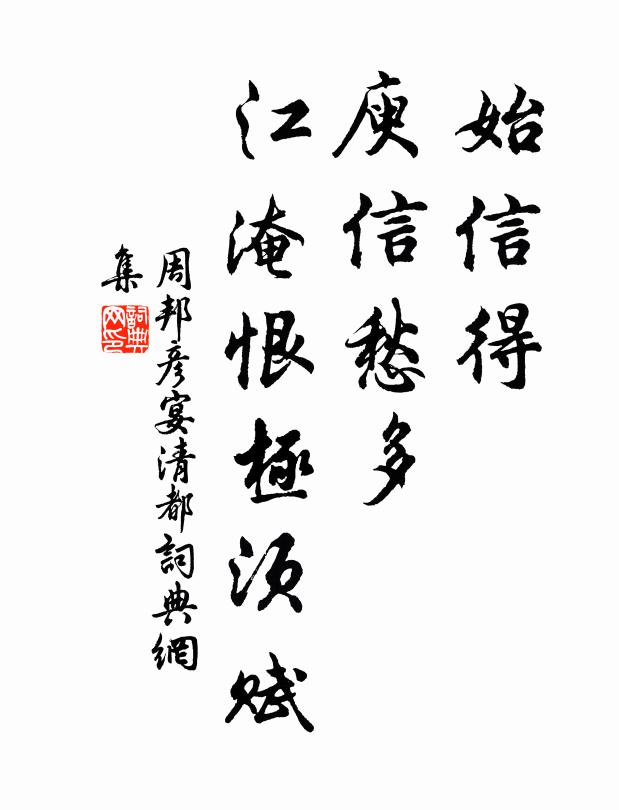 始信得
庾信愁多
江淹恨極須賦
周邦彦宴清都詞典網
集
詞典
网印